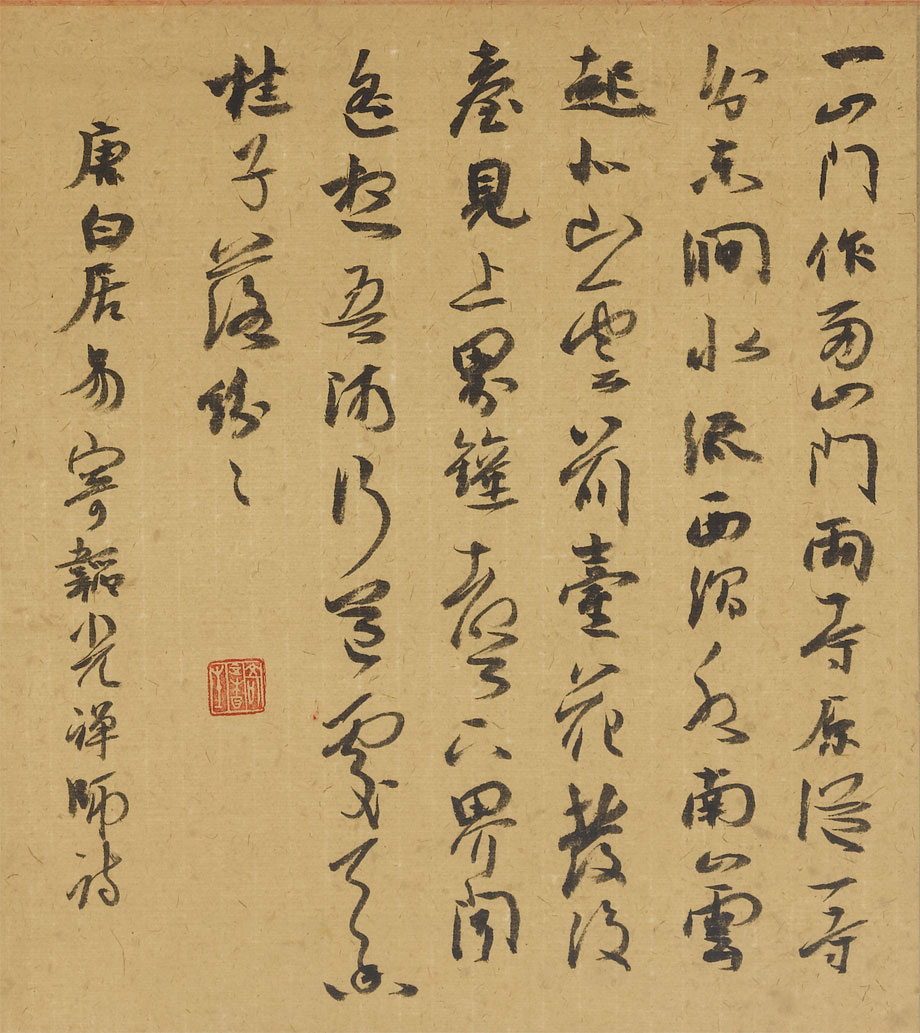 一山門作兩山門兩寺原從一寺
分東澗水流西澗水南山雲
起北山雲前臺花發後
臺見上界鐘聲下界聞
遙想吾師行道處天香
桂子落紛〻
唐白居易寄韜光禪師詩